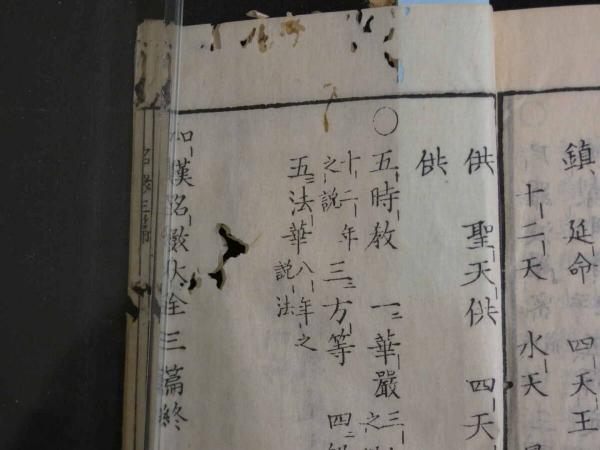 鎮 延命 四天王
十二天 水天
供 聖天供 四天
供
○五時教 一華嚴三
十二年之說 三方等 四
五法華八年之說法
和漢名數大全三篇終
名數三篇